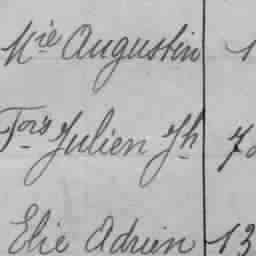 Mie Augustin 1
Fois Julien Jh 7
Elie Adrien 13